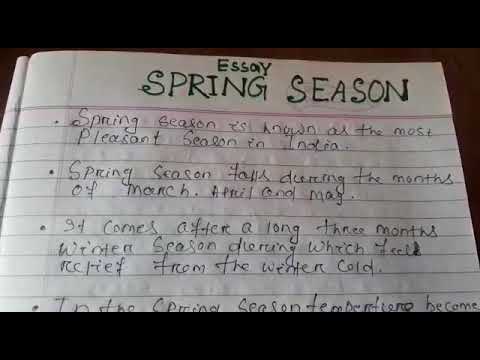 ESSAY
SPRING SEASON
• Spring season is known as the most
Pleasant Season in India.
• Spring Season falls during the months
of march. April and may.
• It comes after a long three months
Winter Season during which feel
relief from the winter cold.
• In the Spring Season become